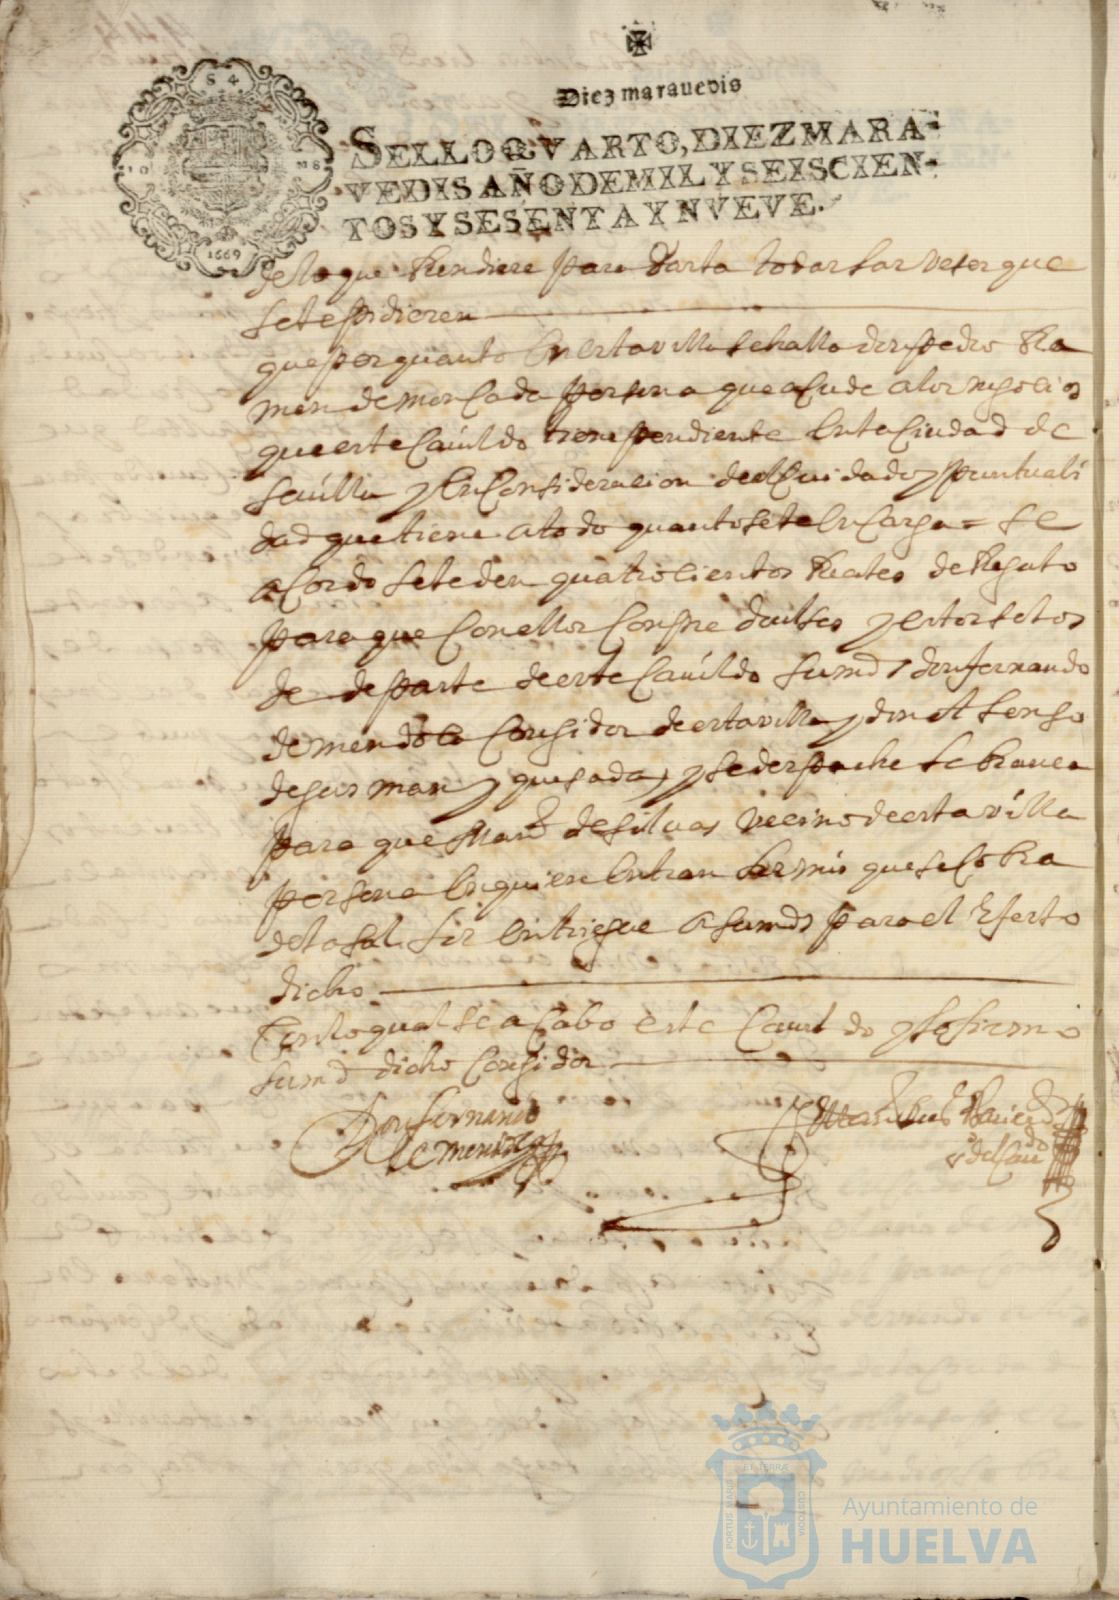 Diez maravedis
SELLO QVARTO, DIEZ MARA-
VEDIS AÑO DE MIL Y SEISCIEN-
TOS Y SESENTA Y NVEVE.
1669
de lo que Rendiere para darla todas las veses que
se le pidieren
que por quanto en esta villa se halla don pedro Ra
mon de moncada persona que acude a los negosios
que este Cauildo tiene pendiente en la Ciudad de
seuilla y en Consideracion del Cuidado y puntuali
dad que tiene a todo quanto se le encarga = se
acordo se le den quatrocientos Reales de Regalo
para que con ellos Conpre dulses y estos se los
de de parte de este Cauildo su md don fernando
de mendosa Coregidor de esta villa y don Alonso
de gusman y quesada, y se despache libransa
para que de siluas vecino de esta villa
persona en quien entran los mrs que se cobra
de la sal los entriegue a su md para el Efecto
dicho
Con lo qual se acabo este Cauildo y lo firmo
su md dicho Coregidor
Don fernando
de mendosa
del cauo
PORTUS MARIS
ET TERRÆ
CUSTODIA
Ayuntamiento de
HUELVA